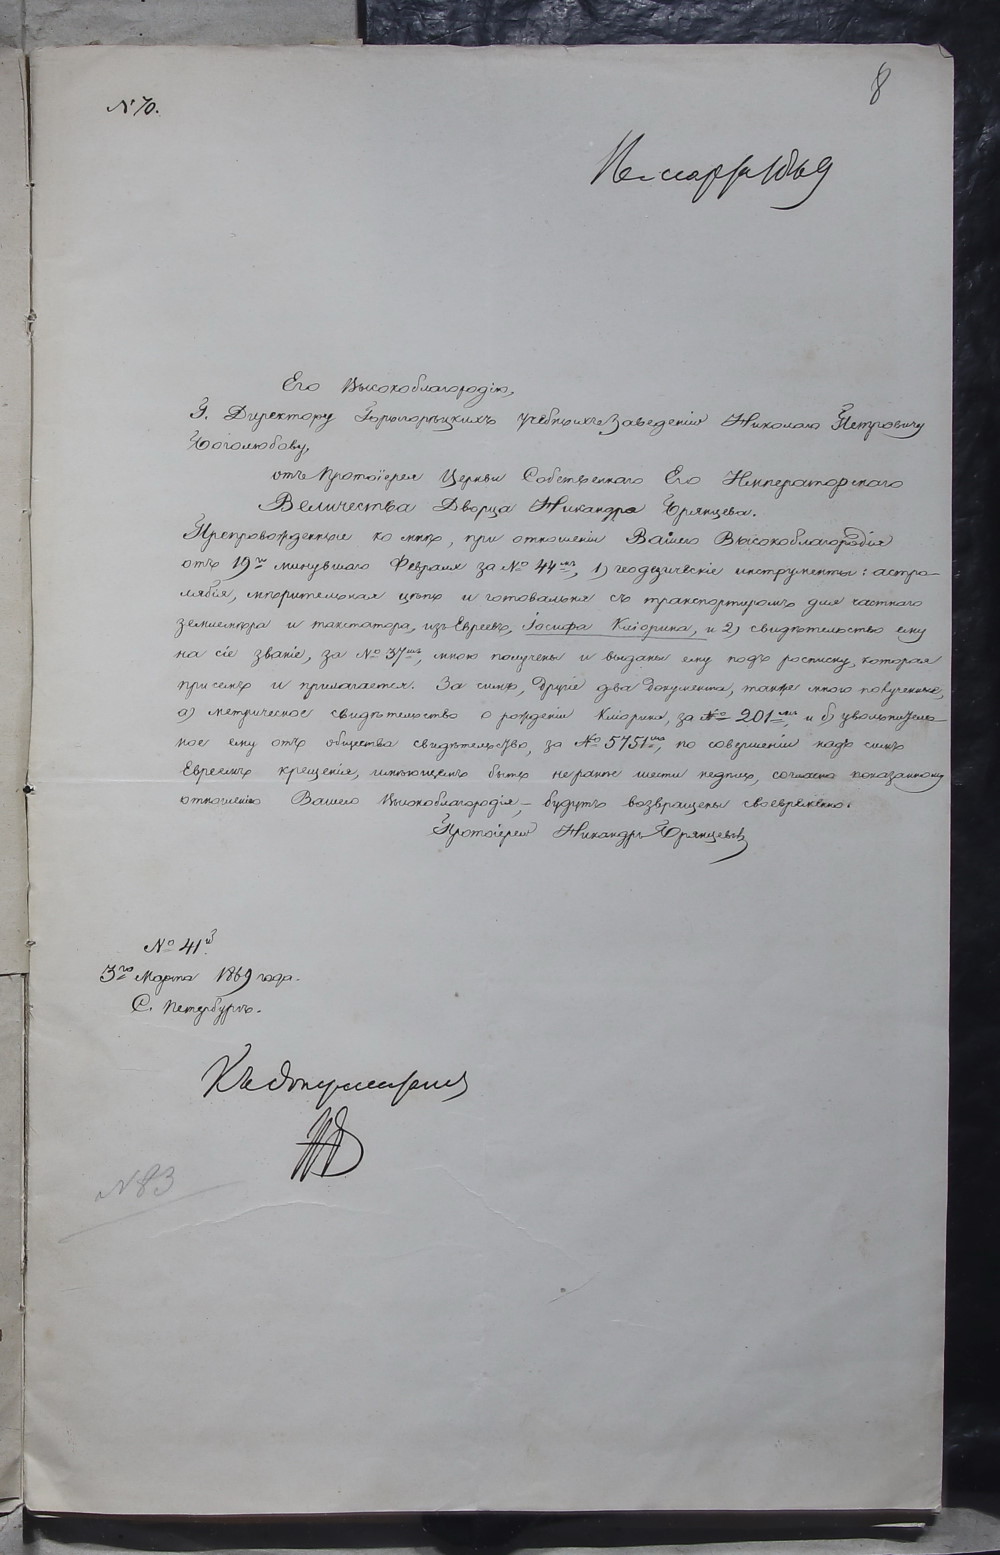 № 70.
8
марта 1869
Его Высокоблагородію,
Г. Директору Горыгорѣцкихъ Учебныхъ Заведеній Николаю Петровичу
Боголюбову,
отъ Протоіерея Церкви Собственнаго Его Императорскаго
Величества Дворца Никандра Брянцева.
Препровожденные ко мнѣ, при отношеніи Вашего Высокоблагородія
отъ 19го минувшаго Февраля за № 44мъ, 1) геодезическіе инструменты: астро-
лябія, мѣрительная цѣпь и готовальня съ транспортиромъ для частнаго
землемѣра и таксатора, изъ Евреевъ, Іосифа Кліорина, и 2) свидѣтельство ему
на сіе званіе, за № 37мъ, мною получены и выданы ему подъ росписку, которая
при семъ и прилагается. За симъ, другіе два документа, также мною полученные,
а) метрическое свидѣтельство о рожденіи Кліорина, за № 201мъ, и б) увольнитель-
ное ему отъ общества свидѣтельство, за № 5751мъ, по совершеніи надъ симъ
Евреемъ крещенія, имѣющемъ быть не ранѣе шести недѣль, согласно показанному
отношенію Вашего Высокоблагородія,– будутъ возвращены своевременно.
Протоіерей Никандръ Брянцевъ
№ 41й.
3го Марта 1869 года.
С. Петербургъ.
Къ документамъ
№ 83